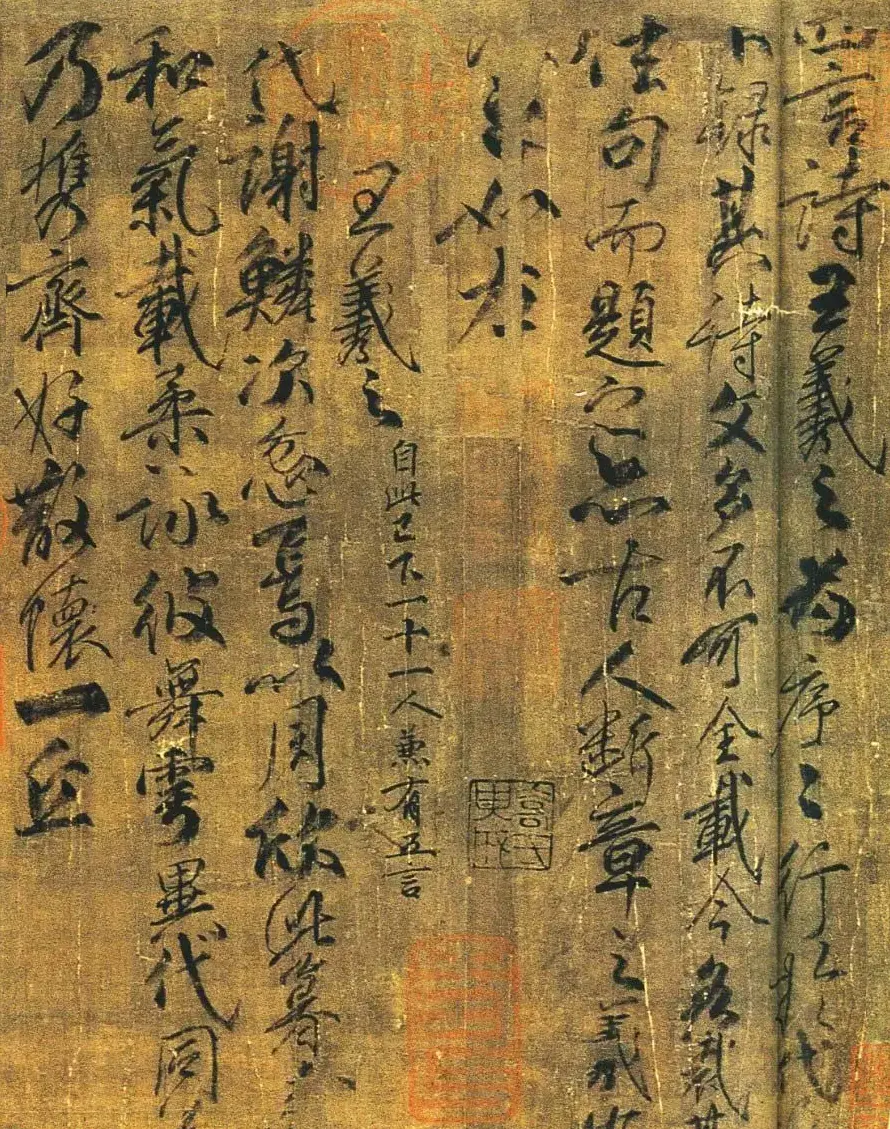 四言詩王羲之為序々行於代
不録其詩文多不可全載今各裁其
佳句而題之亦古人斷章之義也
如左
王羲之
自此已下一十一人兼有五言
代謝鱗次忽焉以周欣此暮春
和氣載柔詠彼舞雩異代同
乃携齊好散懷一丘